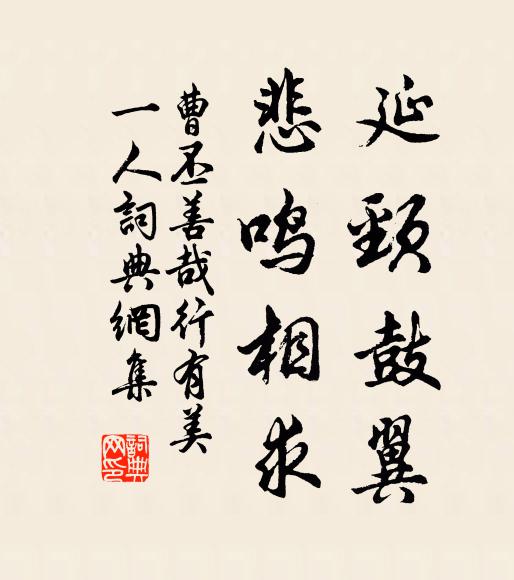 延頸鼓翼
悲鳴相求
曹丕善哉行有美
一人詞典網集
詞典
网印